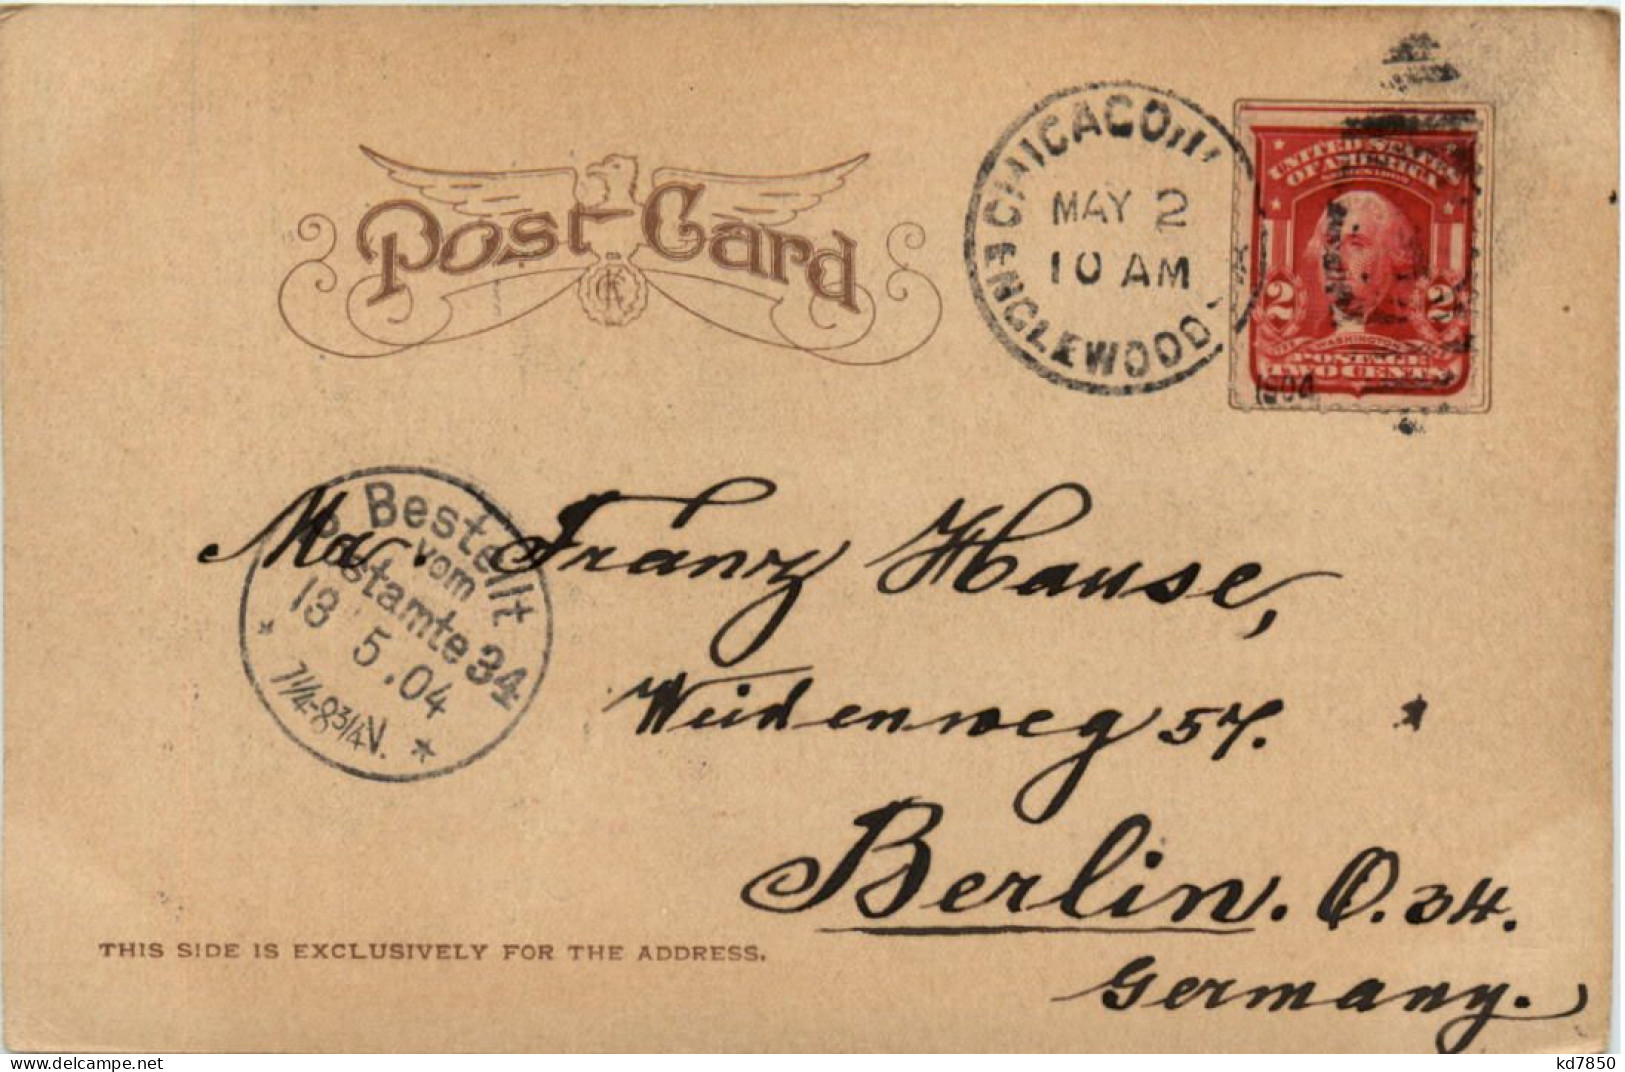 Post Card
CHICAGO, ILL.
MAY 2
10 AM
ENGLEWOOD
1904
UNITED STATES
OF AMERICA
2 2
WASHINGTON
POSTAGE
TWO CENTS
Bestellt
vom
Postamte 34
13 5.04
7 1/4-8 3/4 V.
Mr. Franz Hause,
Weidenweg 57.
Berlin. O. 34.
Germany.
THIS SIDE IS EXCLUSIVELY FOR THE ADDRESS.
delcampe.net
kd7850